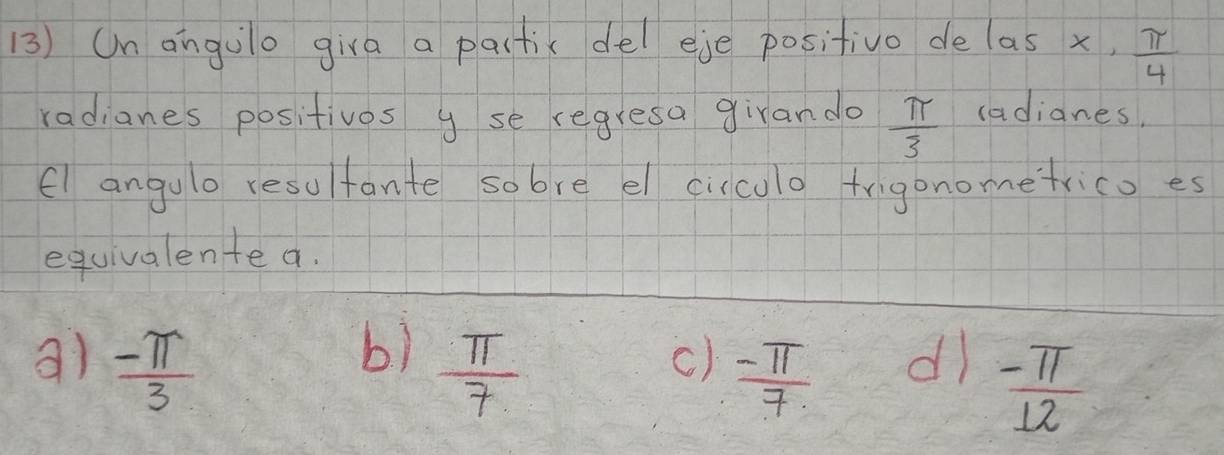 13) Un ángulo gira a partir del eje positivo de las x, π/4
radianes positivos y se regresa girando π/3 radianes.
El angulo resultante sobre el circulo trigonometrico es
equivalente a.
a) -π/3 b) π/7 c) -π/7 d) -π/12